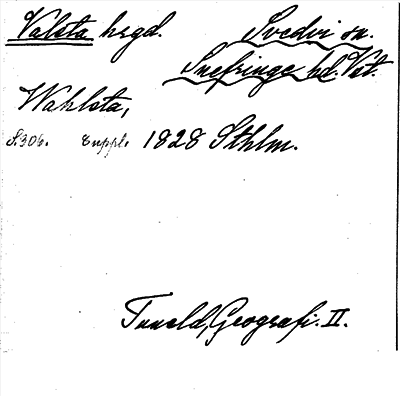 Valsta hrgd. Svedvi sn.
Snefringe hd. Vst.
Wahlsta,
S. 306. Suppl. 1828 Sthlm.
Tuneld, Geografi. II.